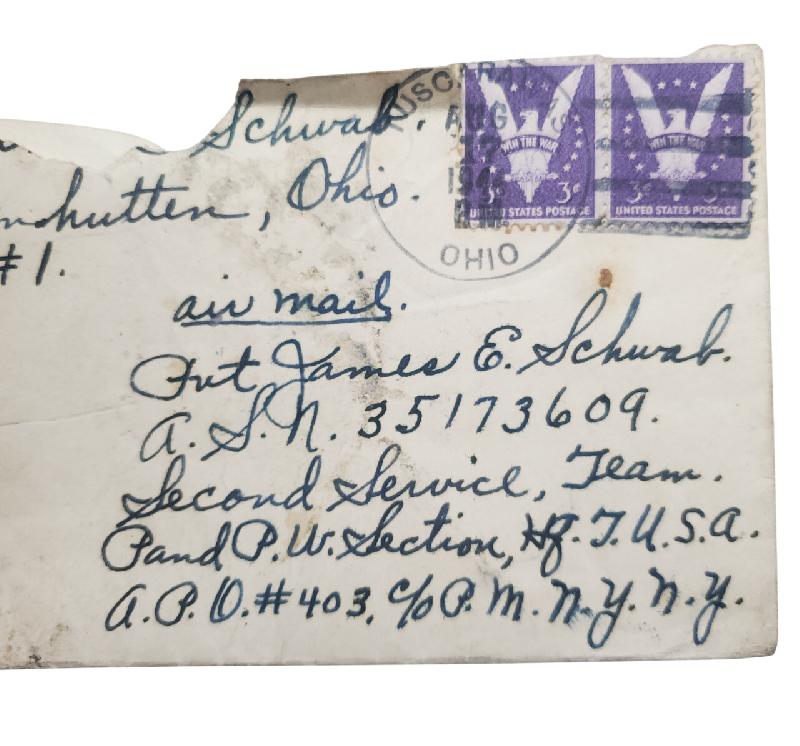 Schwab.
nhutten, Ohio.
#1.
TUSCARAWAS
AUG
194
OHIO
WIN THE WAR
3¢ 3¢
UNITED STATES POSTAGE
WIN THE WAR
3¢ 3¢
UNITED STATES POSTAGE
air mail.
Pvt James E. Schwab.
A.S.N. 35173609.
Second Service, Team.
P and P.W. Section, Hq. T.U.S.A.
A.P.O. #403, c/o P.M. N.Y. N.Y.